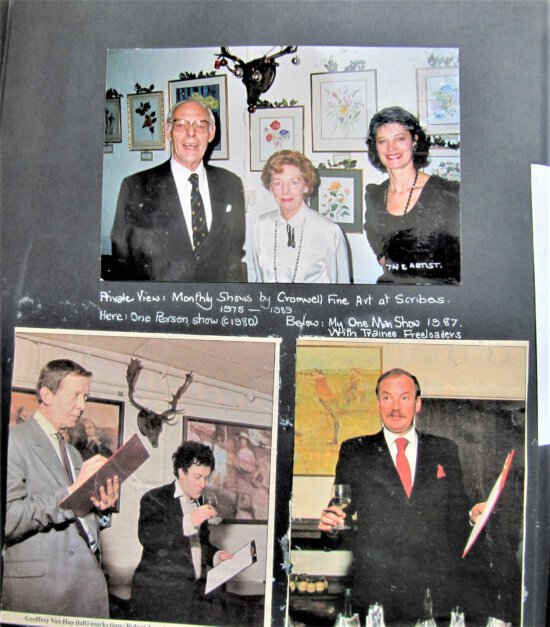 THE ARTIST.
Private View: Monthly Shows by Cromwell Fine Art at Scribes.
1975 — 1989
Here: One Person show (c1980)
Below: My One Man Show 1987.
With Trainee Freeloaders
Geoffrey Van Hay (left) marks time: